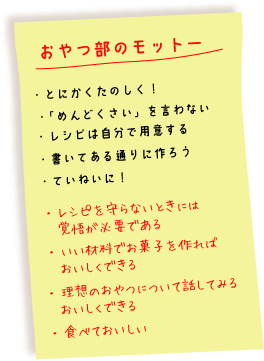 おやつ部のモットー
・とにかくたのしく！
・「めんどくさい」を言わない
・レシピは自分で用意する
・書いてある通りに作ろう
・ていねいに！
・レシピを守らないときには
覚悟が必要である
・いい材料でお菓子を作れば
おいしくできる
・理想のおやつについて話してみる
おいしくできる
・食べておいしい